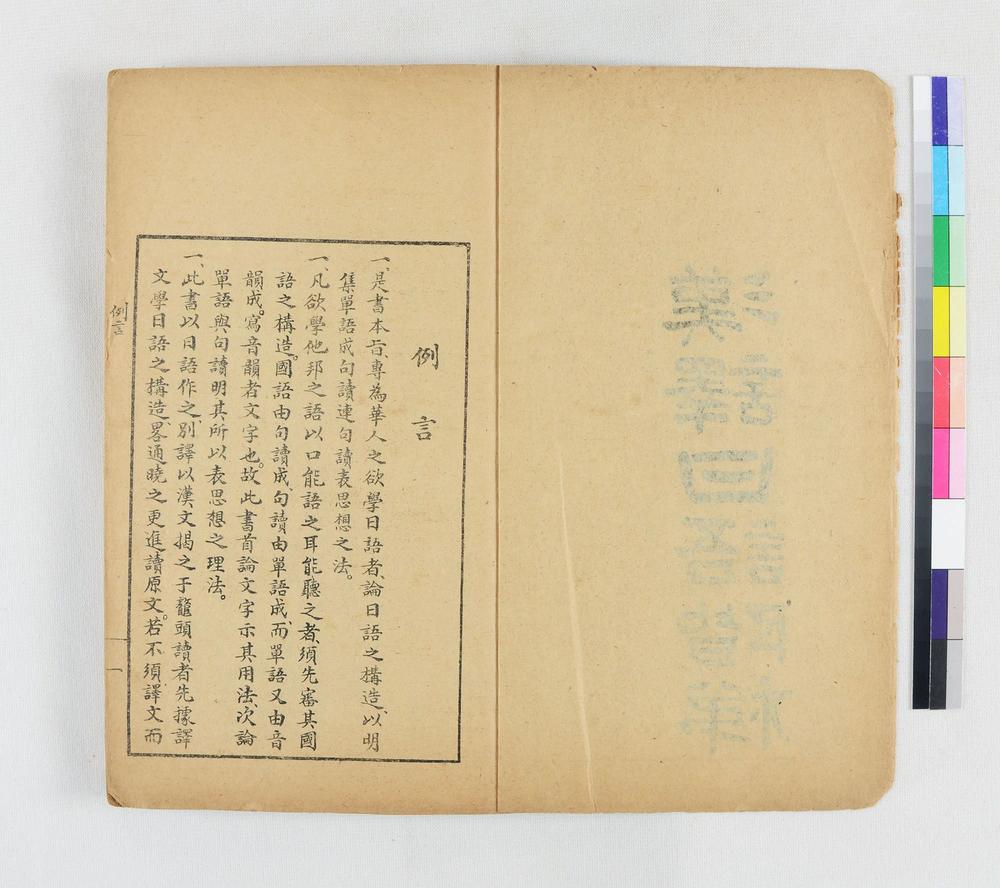 例言
一、是書本旨、專為華人之欲學日語者、論日語之構造、以明
集單語成句讀連句讀表思想之法。
一、凡欲學他邦之語以口能語之耳能聽之者、須先審其國
語之構造。國語由句讀成、句讀由單語成、而單語又由音
韻成。寫音韻者文字也。故此書首論文字示其用法、次論
單語與句讀明其所以表思想之理法。
一、此書以日語作之、別譯以漢文揭之于鼇頭讀者先據譯
文學日語之構造、畧通曉之更進讀原文。若不須譯文而
例言
一